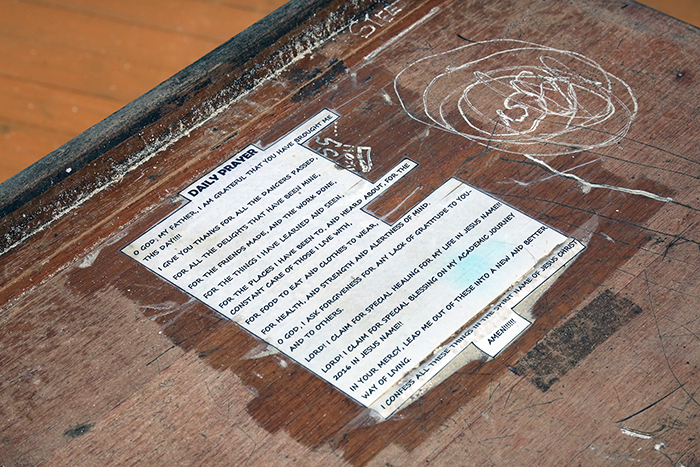 STEE
DAILY PRAYER
O GOD! MY FATHER, I AM GRATEFUL THAT YOU HAVE BROUGHT ME
THIS DAY!!!!
I GIVE YOU THANKS FOR ALL THE DANGERS PASSED,
FOR ALL THE DELIGHTS THAT HAVE BEEN MINE,
FOR THE FRIENDS MADE, AND THE WORK DONE,
FOR THE THINGS I HAVE LEARNED AND SEEN,
FOR THE PLACES I HAVE BEEN TO, AND HEARD ABOUT, FOR THE
CONSTANT CARE OF THOSE I LIVE WITH,
FOR FOOD TO EAT AND CLOTHES TO WEAR,
FOR HEALTH, AND STRENGTH AND ALERTNESS OF MIND.
O GOD, I ASK FORGIVENESS FOR ANY LACK OF GRATITUDE TO YOU-
AND TO OTHERS.
LORD! I CLAIM FOR SPECIAL HEALING FOR MY LIFE IN JESUS NAME!!
LORD! I CLAIM FOR SPECIAL BLESSING ON MY ACADEMIC JOURNEY
2016 IN JESUS NAME!!
IN YOUR MERCY, LEAD ME OUT OF THESE INTO A NEW AND BETTER
WAY OF LIVING.
I CONFESS ALL THESE THINGS IN THE SPIRIT NAME OF JESUS CHRIST
AMEN!!!!!!